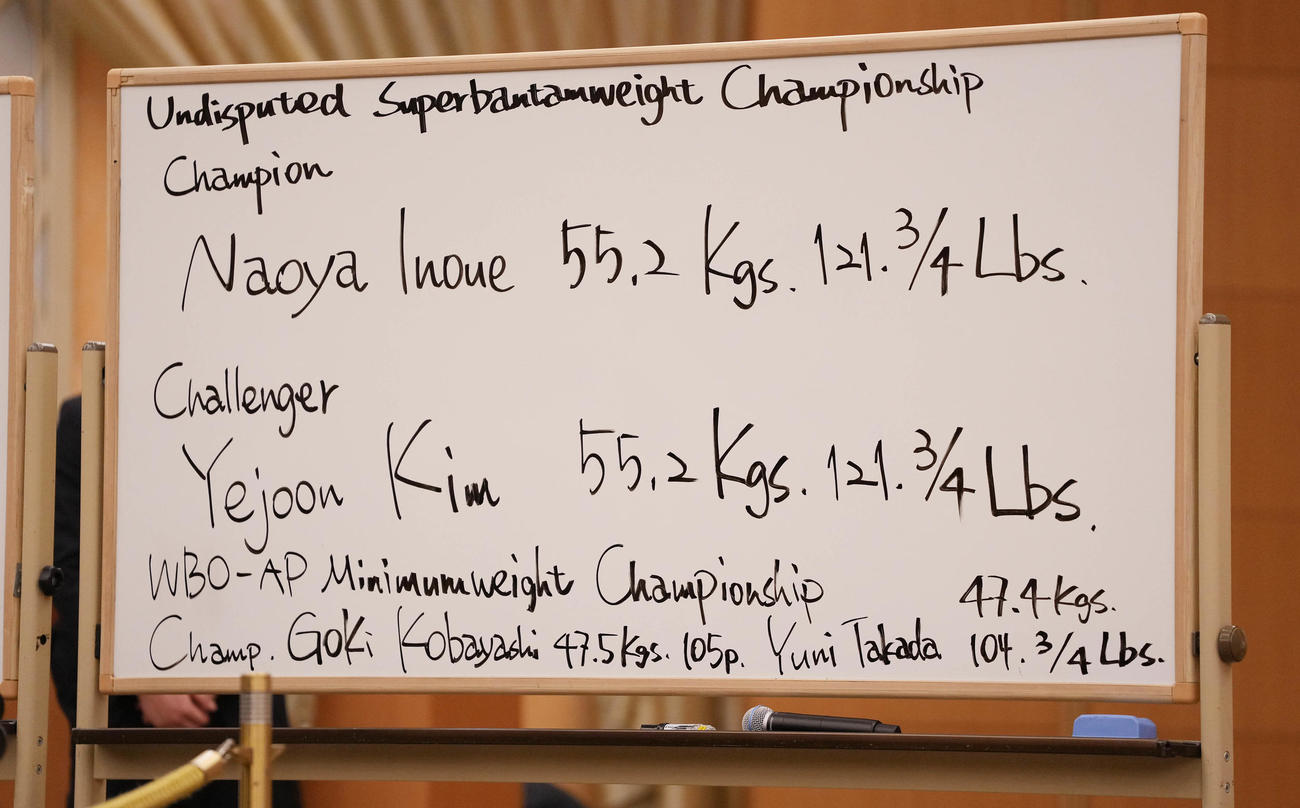 Undisputed Superbantamweight Championship
Champion
Naoya Inoue 55.2 Kgs. 121.3/4 Lbs.
Challenger
Yejoon Kim 55.2 Kgs. 121.3/4 Lbs.
WBO-AP Minimumweight Championship 47.4 Kgs.
Champ. Goki Kobayashi 47.5 Kgs. 105p. Yuni Takada 104.3/4 Lbs.